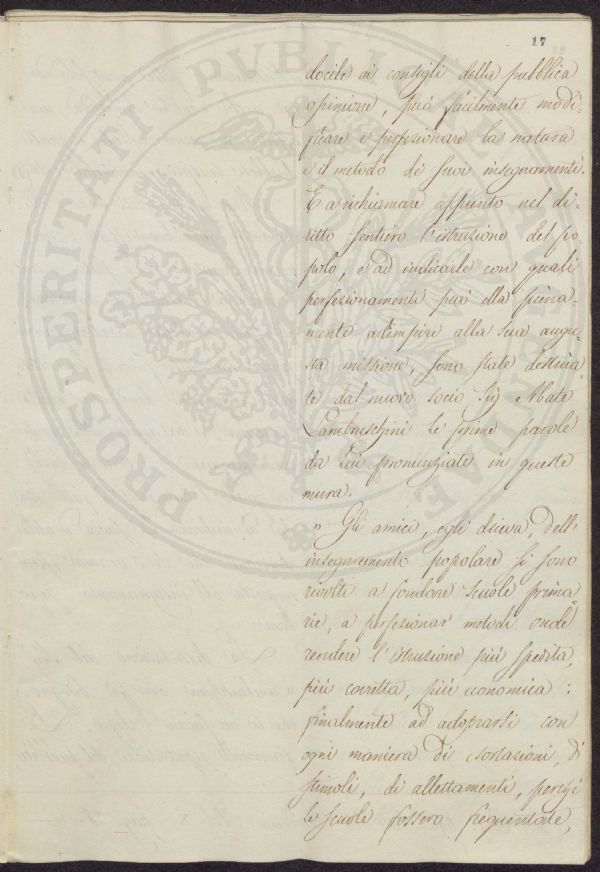 17
docile ai consigli della pubblica
opinione, può facilmente modi-
ficare e perfezionare la natura
e il metodo de' suoi insegnamenti.
E a richiamare appunto nel di-
ritto sentiero l'istruzione del po-
polo, e ad indicarle con quali
perfezionamenti può ella piena-
mente adempire alla sua augu-
sta missione, sono state destina-
te dal nuovo socio Sig Abate
Lambruschini le prime parole
da lui pronunziate in queste
mura.
" Gli amici, egli diceva, dell'
insegnamento popolare si sono
rivolti a fondare scuole prima
rie, a perfezionar metodi onde
rendere l'istruzione più spedita,
più corretta, più economica:
finalmente ad adoprarsi con
ogni maniera di esortazioni, di
stimoli, di allettamenti, perchè
le scuole fossero frequentate,
PROSPERITATI PUBLICAE AUGENDAE